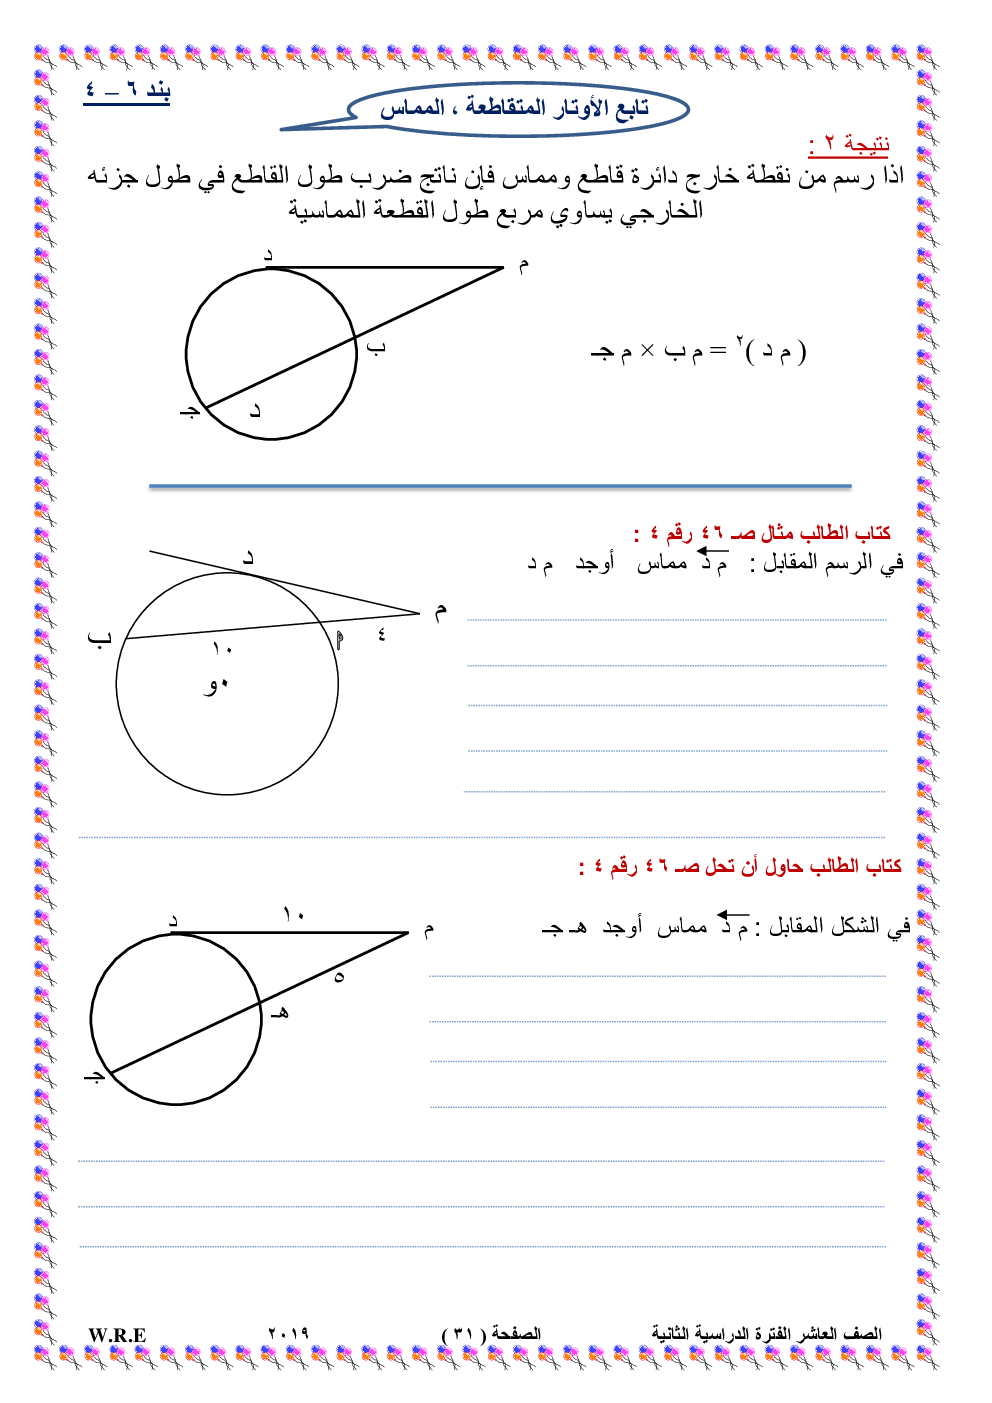 بند ٦ – ٤
تابع الأوتار المتقاطعة ، المماس
نتيجة ٢ :
اذا رسم من نقطة خارج دائرة قاطع ومماس فإن ناتج ضرب طول القاطع في طول جزئه
الخارجي يساوي مربع طول القطعة المماسية
د
م
ب
( م د )٢ = م ب × م جـ
جـ
د
كتاب الطالب مثال صـ ٤٦ رقم ٤ :
في الرسم المقابل : م د مماس أوجد م د
د
م
ب
٤
أ
١٠
و
كتاب الطالب حاول أن تحل صـ ٤٦ رقم ٤ :
في الشكل المقابل : م د مماس أوجد هـ جـ
د
١٠
م
٥
هـ
جـ
الصف العاشر الفترة الدراسية الثانية الصفحة ( ٣١ ) ٢٠١٩ W.R.E